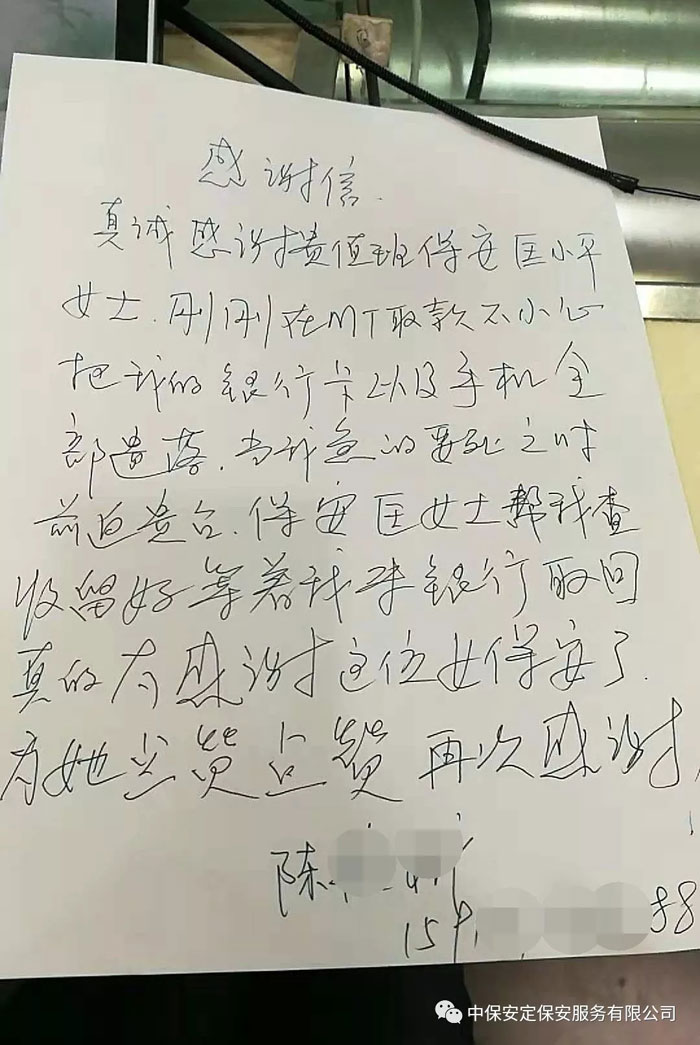 感谢信
真诚感谢贵值班保安匡小平
女士.刚刚在MT取款不小心
把我的银行卡以及手机全
部遗落.当我急的要死之时
前迫贵台.保安匡女士帮我查
收留好等着我来银行取回
真的太感谢这位女保安了.
为她点赞点赞 再次感谢
陈
15
88
中保安定保安服务有限公司